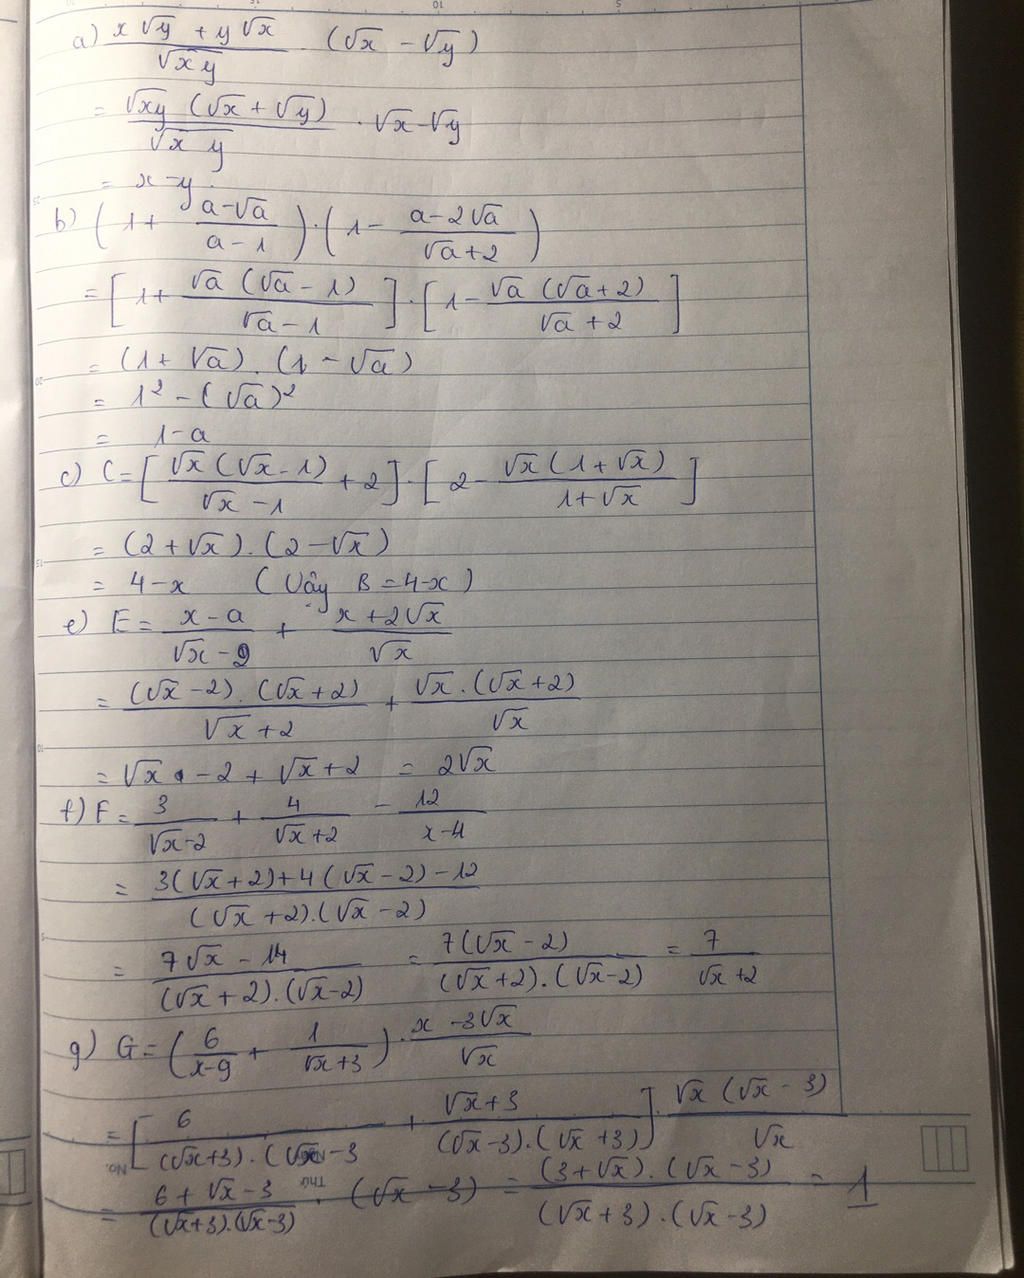 a) (x√y + y√x)/√xy (√x - √y)
= √xy (√x + √y)/√x y . √x - √y
= x - y.
b) (1 + (a - √a)/(a - 1)) . (1 - (a - 2√a)/(√a + 2))
= [1 + √a (√a - 1)/(√a - 1)] . [1 - √a (√a + 2)/(√a + 2)]
= (1 + √a) . (1 - √a)
= 1² - (√a)²
= 1 - a
c) C = [√x (√x - 1)/(√x - 1) + 2] . [2 - √x (1 + √x)/(1 + √x)]
= (2 + √x) . (2 - √x)
= 4 - x (Vây B = 4-x)
e) E = (x - a)/(√x - 2) + (x + 2√x)/√x
= (√x - 2) . (√x + 2)/(√x + 2) + √x . (√x + 2)/√x
= √x - 2 + √x + 2 = 2√x
f) F = 3/(√x - 2) + 4/(√x + 2) - 12/(x - 4)
= (3(√x + 2) + 4(√x - 2) - 12)/((√x + 2).(√x - 2))
= (7√x - 14)/((√x + 2).(√x - 2)) = 7(√x - 2)/((√x + 2).(√x - 2)) = 7/(√x + 2)
g) G = (6/(x - 9) + 1/(√x + 3)) . (x - 3√x)/√x
= [6/((√x + 3).(√x - 3) + (√x + 3)/((√x - 3).(√x + 3))] . √x (√x - 3)/√x
= (6 + √x - 3)/((√x + 3).(√x - 3)) . (√x - 3) = (3 + √x).(√x - 3)/((√x + 3).(√x - 3)) = 1